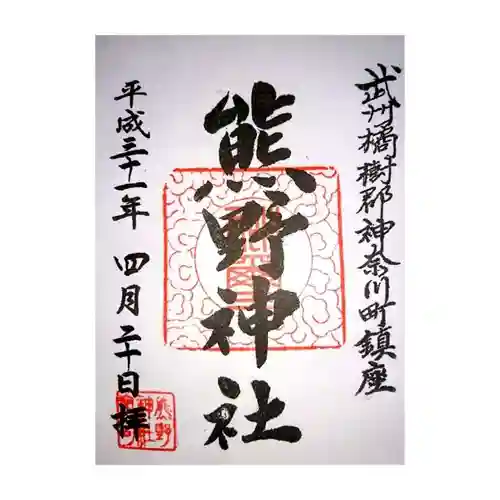 武州橘樹郡神奈川町鎮座
熊野神社
平成三十一年 四月二十日拝